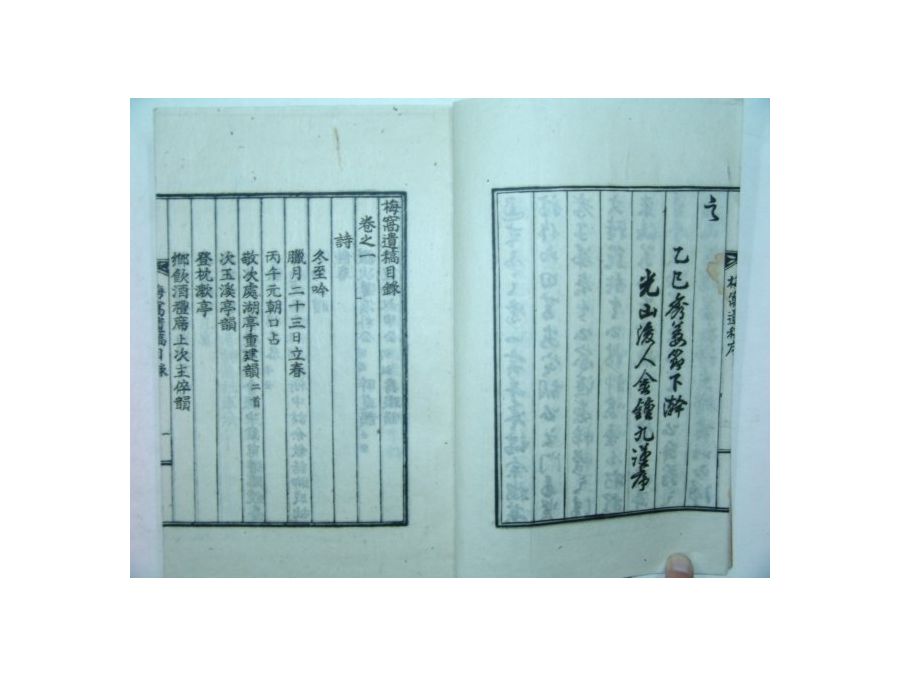 梅窩遺稿序
言
乙巳秀葽節下澣
光山後人金鍾九謹序
梅窩遺稿目錄
卷之一
詩
冬至吟
臘月二十三日立春
丙午元朝口占
敬次處湖亭重建韻 二首
次玉溪亭韻
登枕漱亭
鄉飲酒禮席上次主倅韻
梅窩遺稿目錄 一